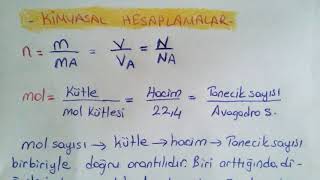 - KİMYASAL HESAPLAMALAR-
n = m/MA = V/VA = N/NA
mol = Kütle/mol Kütlesi = Hacim/22,4 = Tanecik sayısı/Avogadro s.
mol sayısı → kütle → hacim → Tanecik sayısı
birbiriyle doğru orantılıdır. Biri arttığında di-